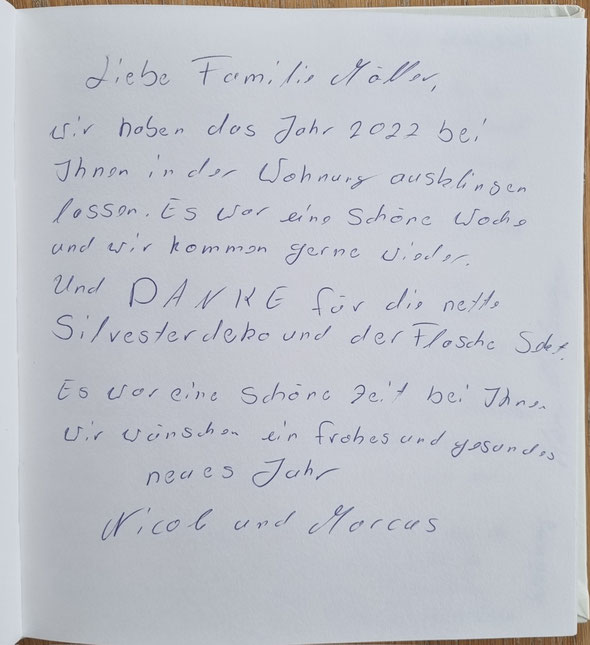 Liebe Familie Möller,
wir haben das Jahr 2022 bei
Ihnen in der Wohnung ausklingen
lassen. Es war eine schöne Woche
und wir kommen gerne wieder.
Und DANKE für die nette
Silvesterdeko und der Flasche Sekt.
Es war eine schöne Zeit bei Ihnen
wir wünschen ein frohes und gesundes
neues Jahr
Nicol und Marcus